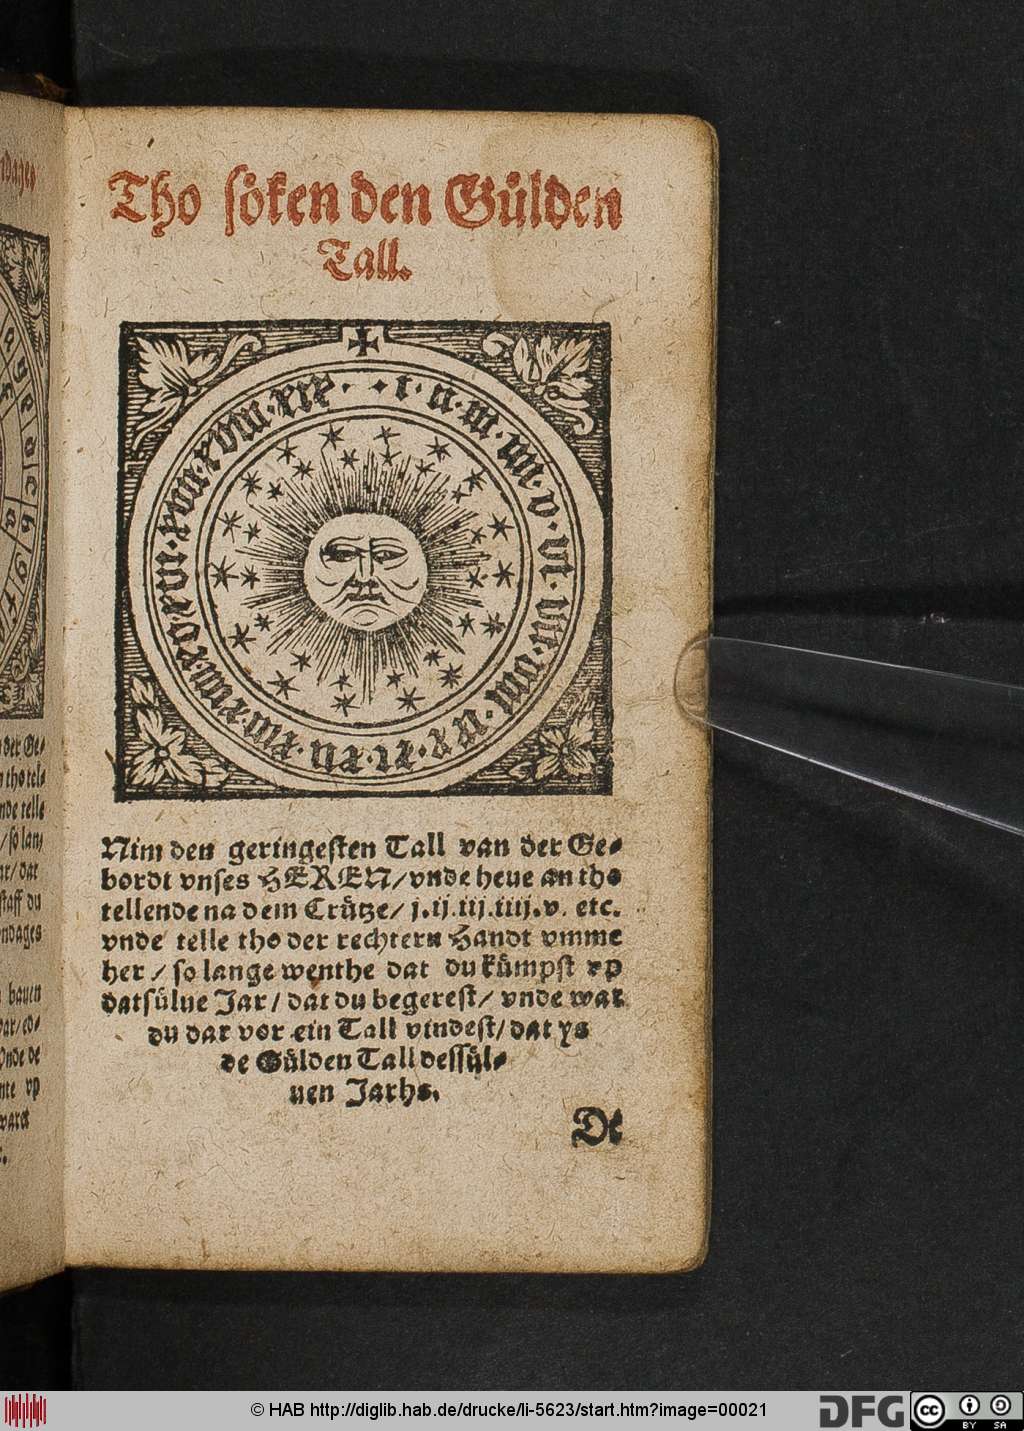 Tho söken den Gülden
Tall.
✠
i. ii. iii. iiii. v. vi. vii. viii. ix. x. xi. xii. xiii. xiiii. xv. xvi. xvii. xviii. xix.
Nim den geringesten Tall van der Ge-
bordt vnses HEREN/vnde heue an tho
tellende na dem Crütze/ j.ij.iij.iiij.v. etc.
vnde telle tho der rechtern Handt vmme
her/ so lange wenthe dat du kümpst vp
datsülue Jar/ dat du begerest/ vnde wat
du dar vor ein Tall vindest/ dat ys
de Gülden Tall dessül-
uen Jarhs.
De
der Ge-
tho tel-
nde telle
/so lan-
ar/dat
staff du
ndages
bauen
Vnde de
vp
© HAB http://diglib.hab.de/drucke/li-5623/start.htm?image=00021
DFG
cc BY SA